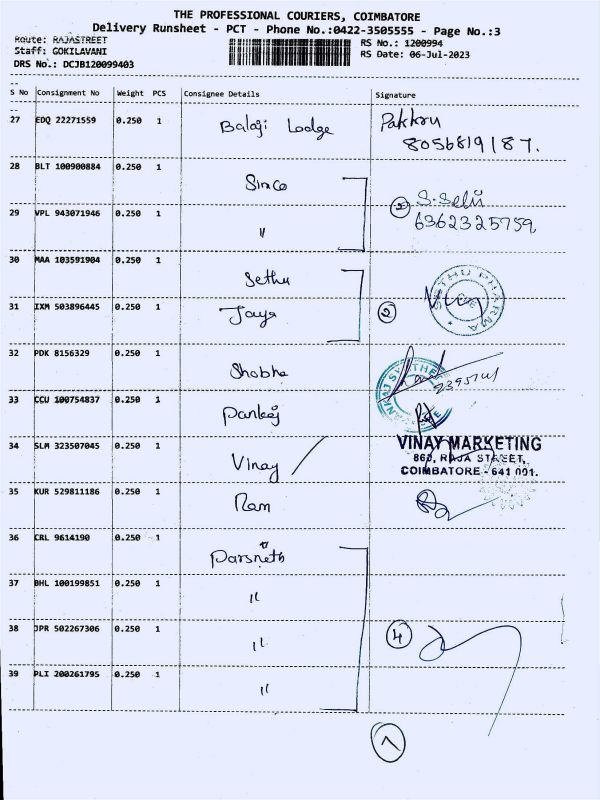 THE PROFESSIONAL COURIERS, COIMBATORE
Delivery Runsheet - PCT - Phone No.:0422-3505555 - Page No.:3
Route: RAJASTREET
RS No.: 1200994
Staff: GOKILAVANI
RS Date: 06-Jul-2023
DRS No.: DCJB120099403
S No Consignment No Weight PCS Consignee Details Signature
27 EDQ 22271559 0.250 1 Balaji Lodge
8056819187.
28 BLT 100900884 0.250 1 Sinco
29 VPL 943071946 0.250 1 "
2 S. Selvi
6362325759
30 MAA 103591904 0.250 1 Sethu
SETHU PHARMA
31 IXM 503896445 0.250 1 Jaya 2
32 PDK 8156329 0.250 1 Shobha
33 CCU 100754837 0.250 1 Pankaj
34 SLM 323507045 0.250 1 Vinay
VINAY MARKETING
860, RAJA STREET,
COIMBATORE - 641 001.
35 KUR 529811186 0.250 1 Ram
36 CRL 9614190 0.250 1 Parsneth
37 BHL 100199851 0.250 1 "
38 JPR 502267306 0.250 1 " 4
39 PLI 200261795 0.250 1 "
7